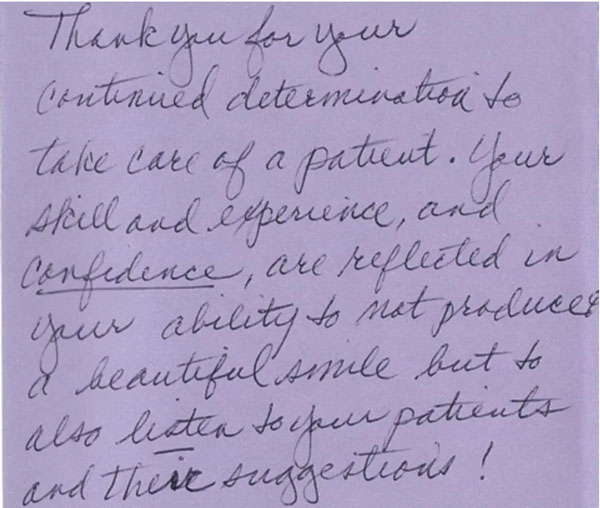 Thank you for your
continued determination to
take care of a patient. Your
skill and experience, and
confidence, are reflected in
your ability to not produce
a beautiful smile but to
also listen to your patients
and their suggestions!